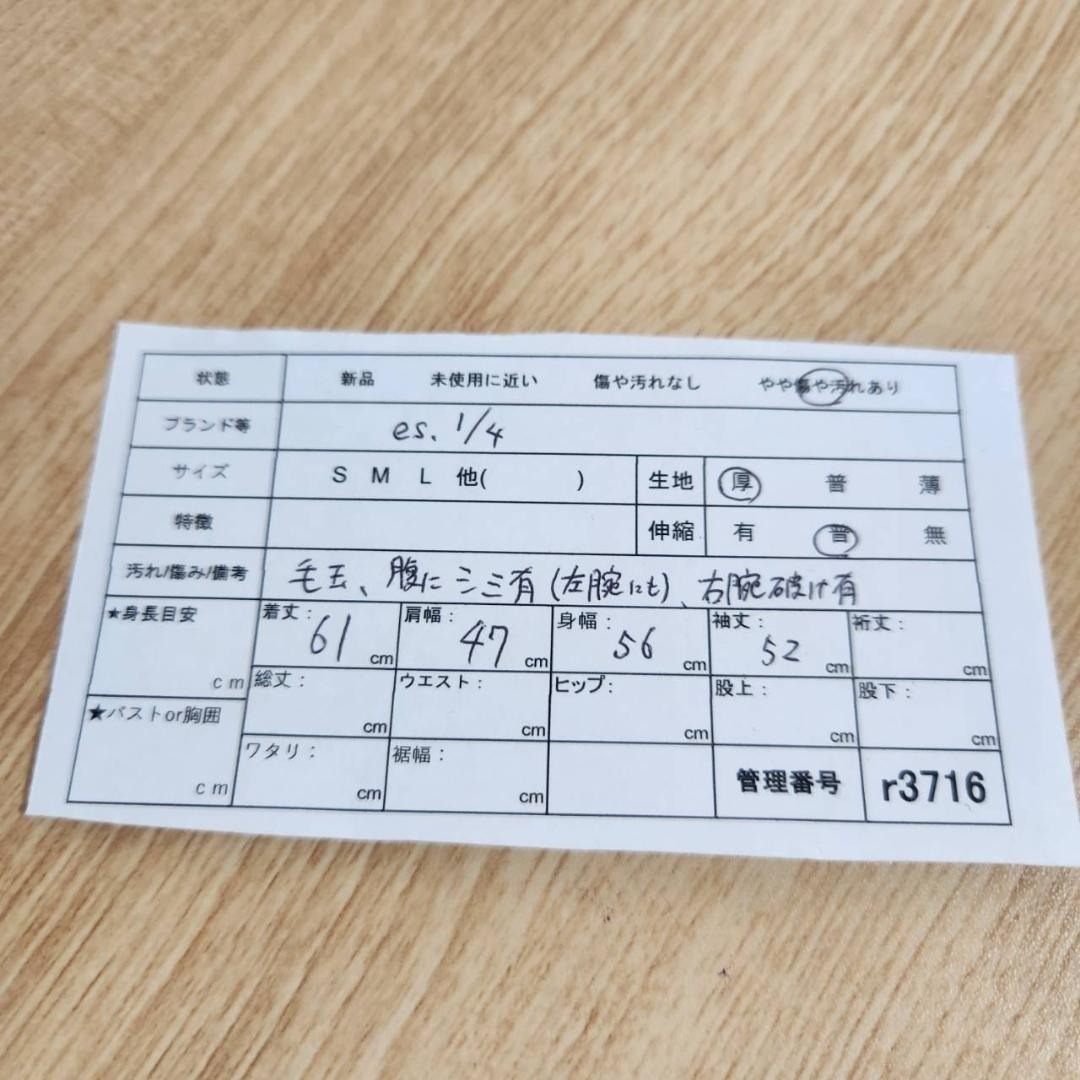 状態 新品 未使用に近い 傷や汚れなし やや傷や汚れあり
ブランド等 es. 1/4
サイズ S M L 他( ) 生地 厚 普 薄
特徴 伸縮 有 普 無
汚れ/傷み/備考 毛玉、腹にシミ有(左腕にも)、右腕破け有
★身長目安 cm 着丈: 61 cm 肩幅: 47 cm 身幅: 56 cm 袖丈: 52 cm 裄丈: cm
総丈: cm ウエスト: cm ヒップ: cm 股上: cm 股下: cm
★バストor胸囲 cm ワタリ: cm 裾幅: cm 管理番号 r3716